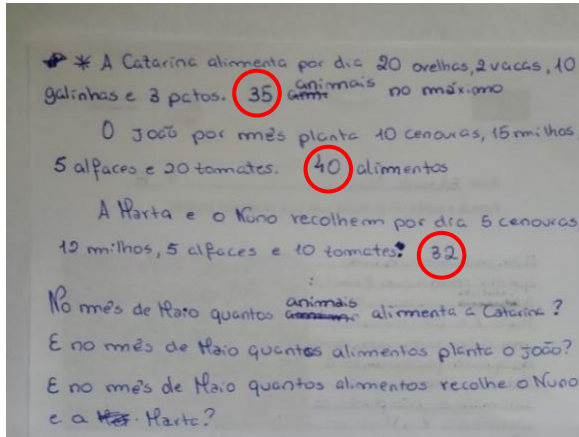 * A Catarina alimenta por dia 20 ovelhas, 2 vacas, 10
galinhas e 3 patos. 35 animais no máximo
O João por mês planta 10 cenouras, 15 milhos
5 alfaces e 20 tomates. 40 alimentos
A Marta e o Nuno recolhem por dia 5 cenouras
12 milhos, 5 alfaces e 10 tomates. 32
No mês de Maio quantos animais alimenta a Catarina?
E no mês de Maio quantos alimentos planta o João?
E no mês de Maio quantos alimentos recolhe o Nuno
e a Marta?